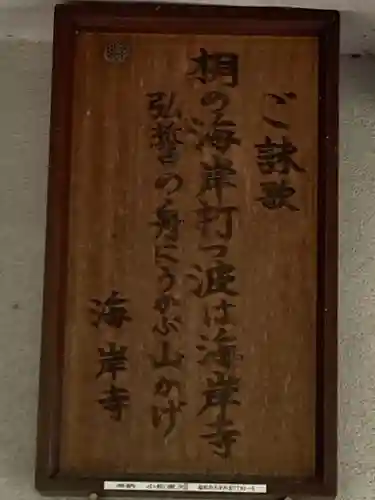 ご詠歌
相の海岸打つ波は海岸寺
弘誓の舟にうかぶ山かげ
海岸寺